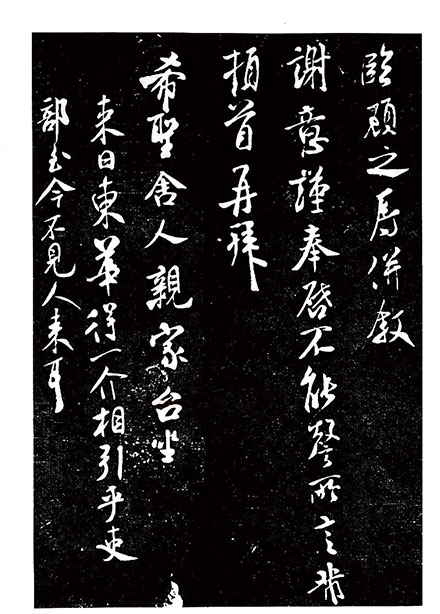 臨顧之辱併敘
謝意謹奉啓不能罄所言肯
頓首再拜
希聖舍人親家台坐
來日東華得一介相引乎吏
部玉今不見人來耳